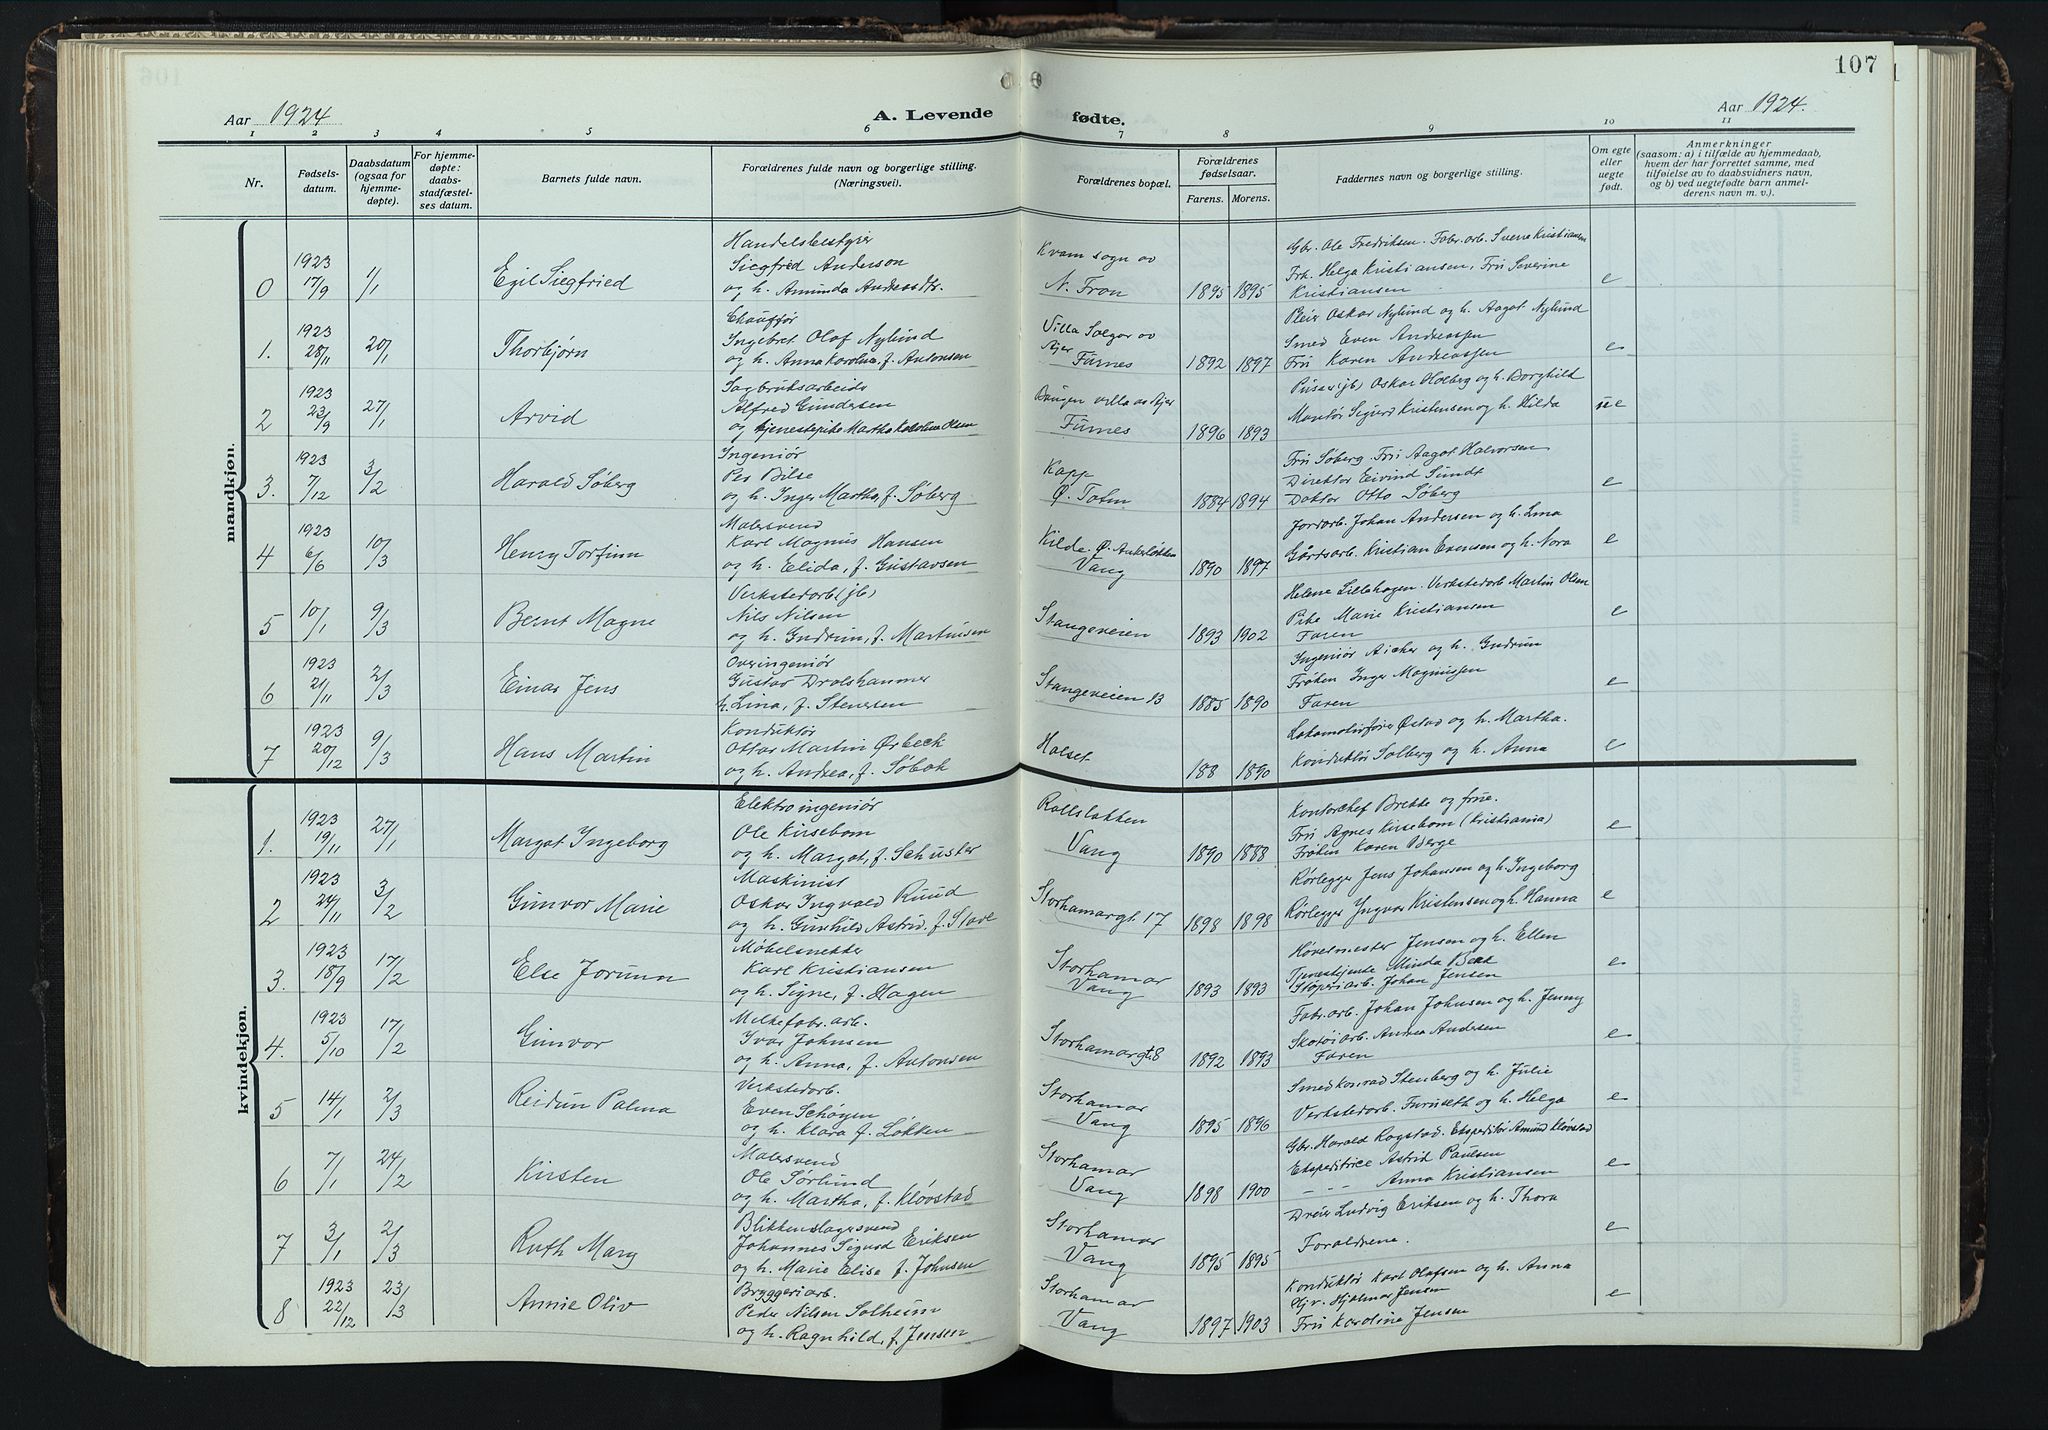 107
Aar 1924
A. Levende fødte.
Aar 1924.
1 2 3 4 5 6 7 8 9 10 11
Nr.
Fødsels-
datum.
Daabsdatum
(ogsaa for
hjemme-
døpte).
For hjemme-
døpte:
daabs-
stadfæstel-
ses datum.
Barnets fulde navn.
Forældrenes fulde navn og borgerlige stilling.
(Næringsvei).
Forældrenes bopæl.
Forældrenes
fødselsaar.
Farens. Morens.
Faddernes navn og borgerlige stilling.
Om egte
eller
uegte
født.
Anmerkninger
(saasom: a) i tilfælde av hjemmedaab,
hvem der har forrettet samme, med
tilføielse av to daabsvidners navn,
og b) ved uegtefødte barn anmel-
derens navn m. v.).
mandkjøn.
0 1923 17/9 1/1 Egil Siegfried
Handelsbestyrer
Siegfred Anderson
og h. Amunda Andreasdtr.
Kvam sogn av
N. Fron 1895 1895
Gbr. Ole Fredriksen. Fabr. arb. Sverre Kristiansen
Frk. Helga Kristiansen, Fru Severine
Kristiansen e
1. 1923 28/11 20/1 Thorbjørn
Chauffør
Ingebret Olaf Nylund
og h. Anna Karoline f. Antonsen
Villa Solgør av
Ajer
Furnes 1892 1897
Pleier Oskar Nylund og h. Aagot Nylund
Smed Even Andreassen
Fru Karen Andreassen e
2 1923 23/9 27/1 Arvid
Sagbruksarbeide
Alfred Gundersen
og tjenestepike Martha Karoline Olsen
villa av Ajer
Furnes 1896 1893
Pusser (jb) Oskar Holberg og h. Borghild
Montør Sigurd Kristensen og h. Hilda ue
3. 1923 7/12 3/2 Harald Søberg
Ingeniør
Per Bilse
og h. Inger Martha, f. Søberg
Kapp
Ø. Toten 1884 1894
Fru Søberg. Fru Aagot Halvorsen
Direktør Eivind Sundt
Doktor Otto Søberg e
4 1923 6/6 10/3 Henry Torfinn
Malersvend
Karl Magnus Hansen
og h. Elida, f. Gustavsen
Kilde. Ø. Ankerløkken
Vang 1890 1897
Jordarb. Johan Andersen og h. Lina
Gårdsarb. Kristian Evensen og h. Nora e
5 10/1 9/3 Bernt Magne
Verkstedarb (jb)
Nils Nilsen
og h. Gudrun, f. Martinsen
Stangeveien 1893 1902
Helene Lillehagen. Verkstedarb Martin Olsen
Pike Marie Kristiansen
Faren e
6 1923 21/11 2/3 Einar Jens
Overingeniør
Gustav Drolshammer
h. Lina, f. Stenersen
Stangeveien 13 1885 1890
Ingeniør Aicher og h. Gudrun
Frøken Inger Magnussen
Faren e
7 1923 20/12 9/3 Hans Martin
Konduktør
Ottar Martin Ørbeck
og h. Andrea, f. Søbak
Holset 188 1890
Lokomotivfører Østad og h. Martha.
Konduktør Solberg og h. Anna e
kvindekjøn.
1. 1923 19/11 27/1 Margot Ingeborg
Elektroingeniør
Ole Kirsebom
og h. Margot, f. Schuster
Rollsløkken
Vang 1890 1888
Kontorchef Brette og frue.
Fru Agnes Kirsebom (Kristiania)
Frøken Karen Berge e
2 1923 24/11 3/2 Gunvor Marie
Maskinist
Oskar Ingvald Ruud
og h. Gunhild Astrid, f. Stave
Storhamargt. 17 1898 1898
Rørlegger Jens Johansen og h. Ingeborg
Rørlegger Yngvar Kristensen og h. Hanna e
3. 1923 18/9 17/2 Else Jorunn
Møbelsnekker
Karl Kristiansen
og h. Signe, f. Hagen
Storhamar
Vang 1893 1893
Høvelmester Jensen og h. Ellen
Tjenestejente Minda Bekk
Støperiarb. Johan Jensen e
4. 1923 5/10 17/2 Gunvor
Melkefabr. arb.
Ivar Johnsen
og h. Anna, f. Antonsen
Storhamargt 8 1892 1893
Fabr. arb. Johan Johnsen og h. Jenny
Skotøiarb. Andrea Andersen
Faren e
5 14/1 2/3 Reidun Palma
Verkstedarb.
Even Schøyen
og h. Klara f. Løkken
Storhamar
Vang 1895 1896
Smed Konrad Stenberg og h. Julie
Verkstedarb. Furuseth og h. Helga e
6 7/1 24/2 Kirsten
Malersvend
Ole Sørlund
og h. Martha, f. Kløvstad
Storhamar
Vang 1898 1900
Gbr. Harald Rogstad. Ekspeditør Amund Kløvstad
Ekspeditrice Astrid Paulsen
- - - Anna Kristiansen e
7 3/1 2/3 Ruth Mary
Blikkenslagersvend
Johannes Sigurd Eriksen
og h. Marie Elise f. Johnsen
Storhamar
Vang 1895 1895
Dreier Ludvig Eriksen og h. Thora
Forældrene. e
8 1923 22/12 23/3 Annie Oliv
Bryggeriarb.
Peder Nilsen Solheim
og h. Ragnhild, f. Jensen
Storhamar
Vang 1897 1903
Konduktør Karl Olafsen og h. Anna
Hjv. Hjalmar Jensen
Fru Karoline Jensen e